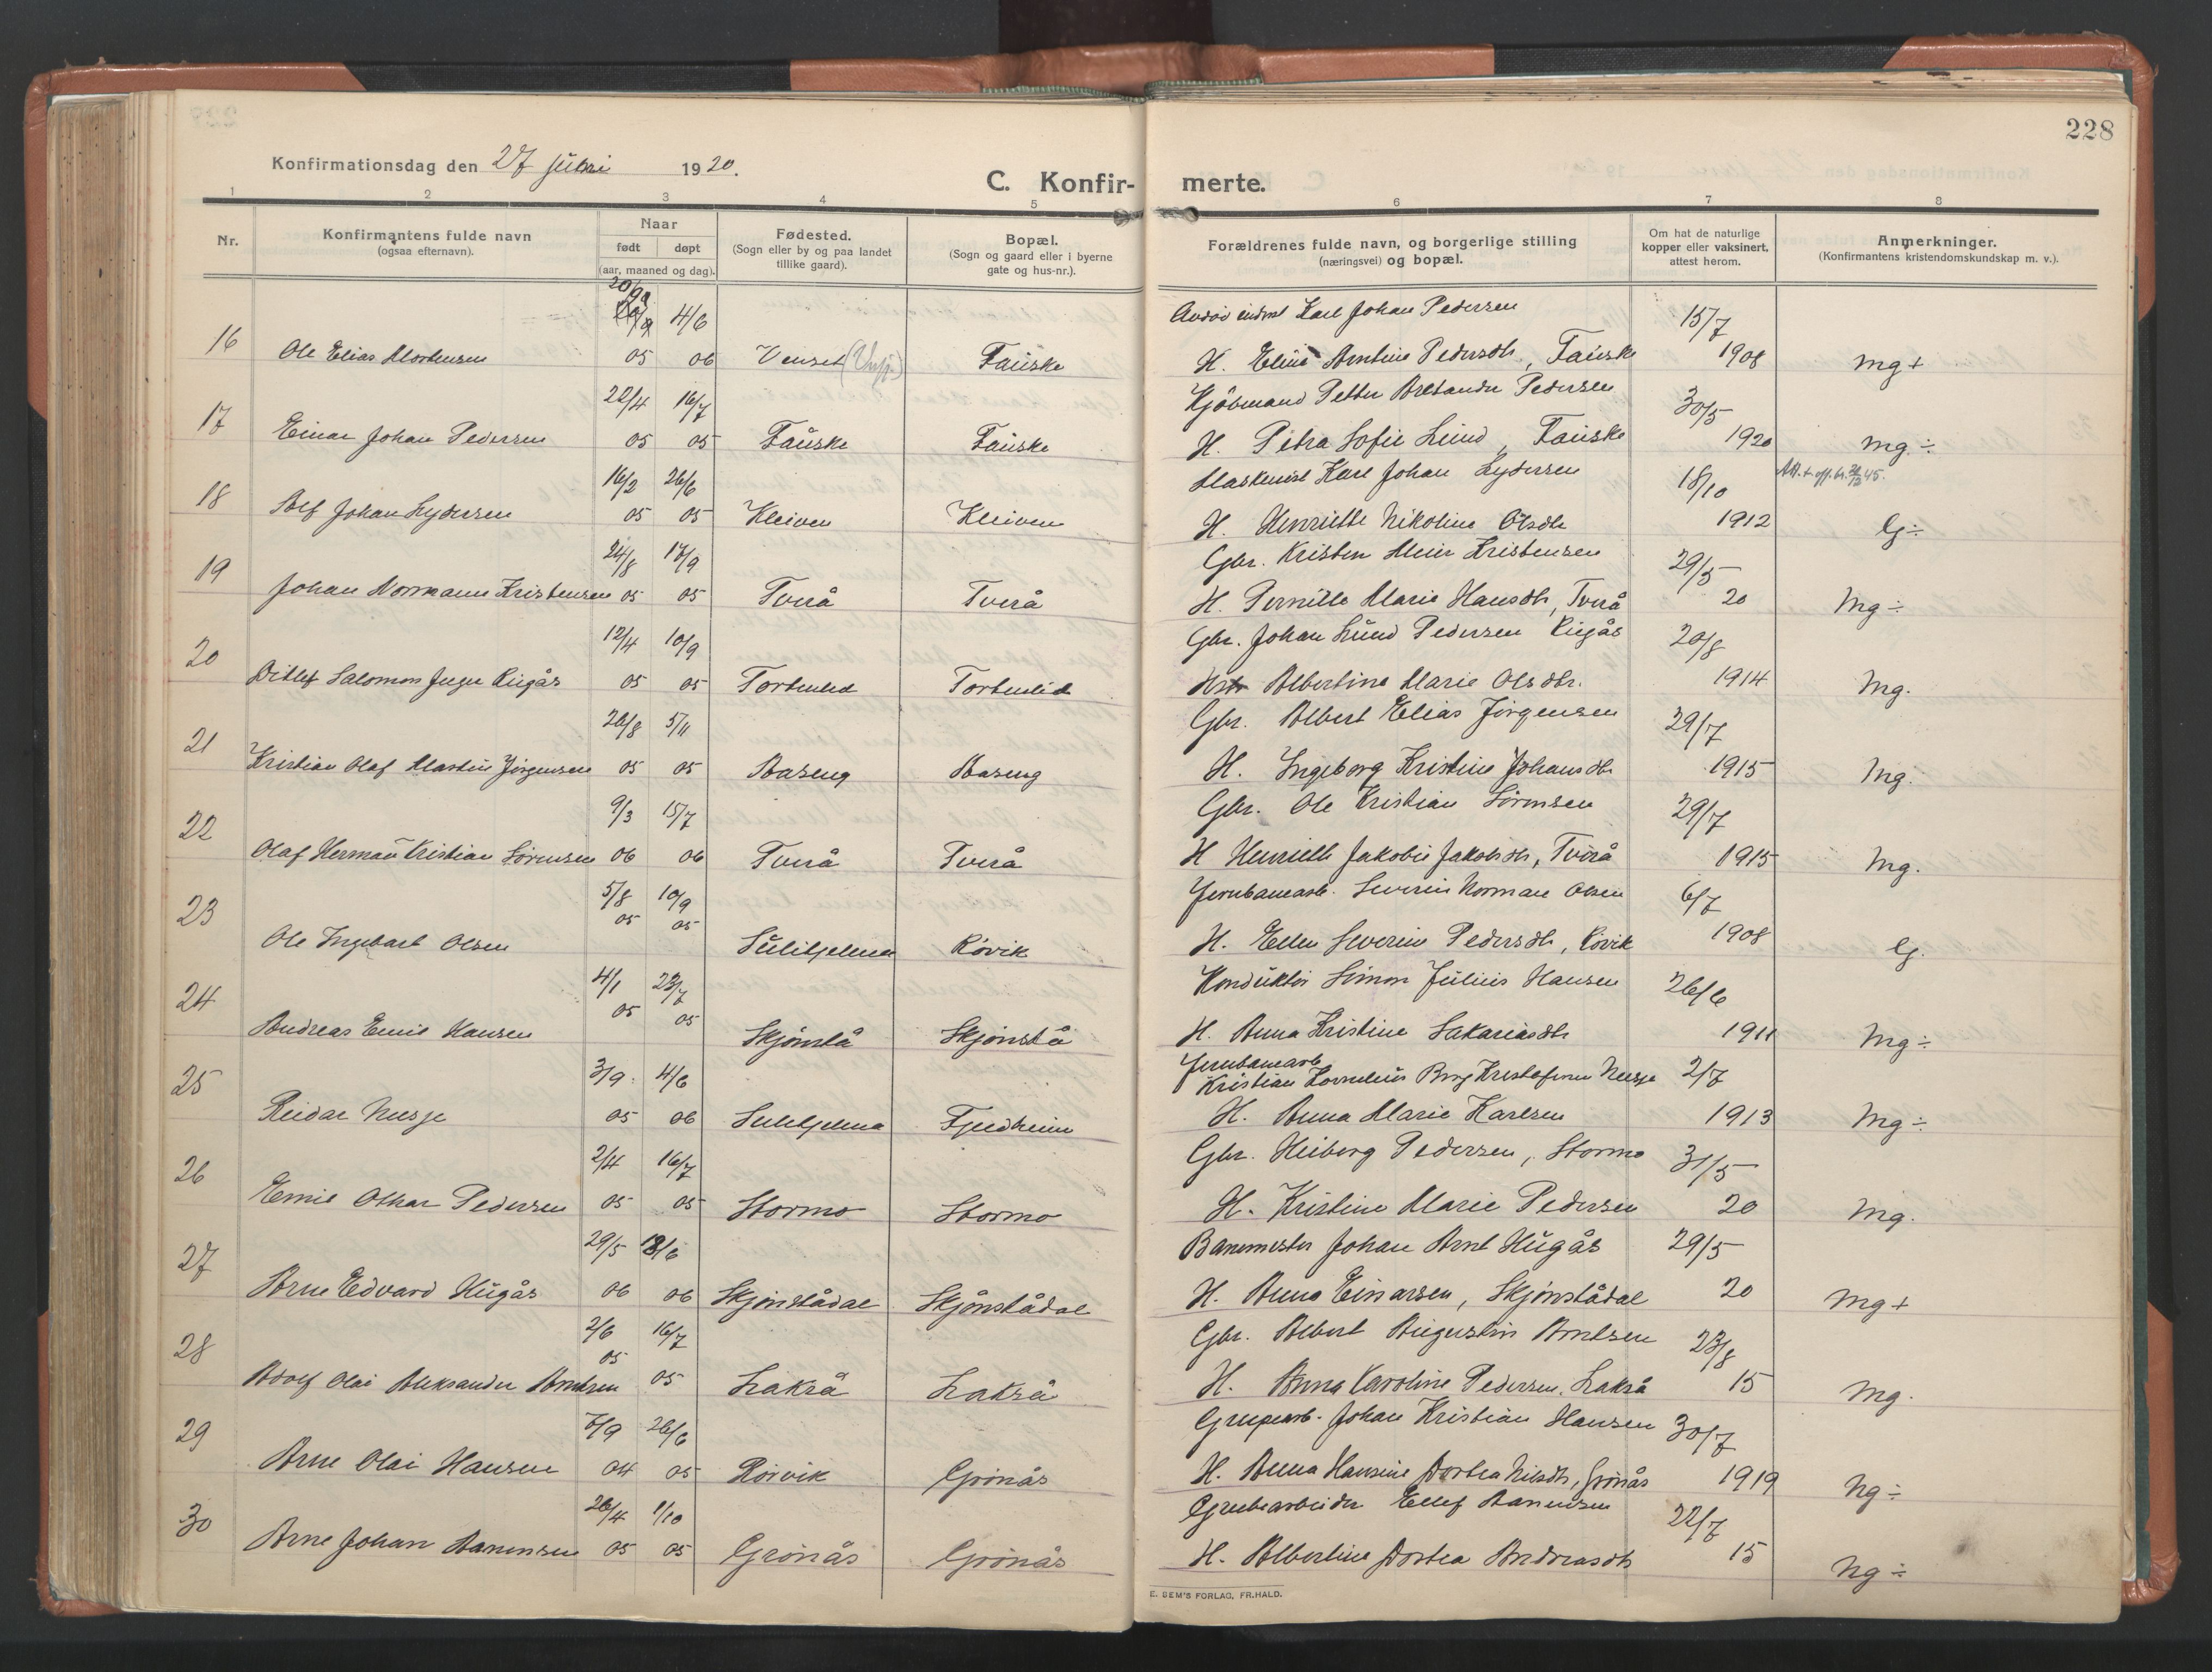 228
Konfirmationsdag den 27 juni 1920.
C. Konfir- merte.
1 2 3 4 5 6 7 8
Nr.
Konfirmantens fulde navn
(ogsaa efternavn).
Naar
født døpt
(aar, maaned og dag).
Fødested.
(Sogn eller by og paa landet
tillike gaard).
Bopæl.
(Sogn og gaard eller i byerne
gate og hus-nr.).
Forældrenes fulde navn, og borgerlige stilling
(næringsvei) og bopæl.
Om hat de naturlige
kopper eller vaksinert,
attest herom.
Anmerkninger.
(Konfirmantens kristendomskundskap m. v.).
20/9 4/6 Karl Johan Pedersen 15/7
16 Ole Elias Mortensen 05 06 Venset Fauske H. Eline Arntine Pedersdtr, Fauske 1908 Mg +
22/4 16/7 Kjøbmand Petter Pedersen 30/5
17 Einar Johan Pedersen 05 05 Fauske Fauske H. Petra Sofie Lund, Fauske 1920 Mg ÷
16/2 26/6 Maskinist Karl Johan Lydersen 18/10
18 Alf Johan Lydersen 05 05 Kleiven Kleiven H. Henriette Nikoline Olsdtr 1912 G ÷
24/8 17/9 Gbr. Kristen Meier Kristensen 29/5
19 Johan Normann Kristensen 05 05 Tverå Tverå H. Pernille Marie Hansdtr, Tverå 20 Mg ÷
12/4 10/9 Gbr. Johan Lund Pedersen 20/8
20 Ditlef Salomon 05 05 Tortenlid Tortenlid Albertine Marie Olsdtr. 1914 Mg.
26/8 5/11 Gbr. Albert Elias Jørgensen 29/7
21 Kristian Olaf Martin Jørgensen 05 05 Aaseng Aaseng H. Ingeborg Kristine Johansdtr 1915 Mg.
9/3 15/7 Gbr. Ole Kristian Sørensen 29/7
22 Olaf Herman Kristian Sørensen 06 06 Tverå Tverå H Henriette Jakobie Jakobsdtr, Tverå 1915 Mg.
5/8 10/9 Jernbanearb. Severin Norman Olsen 6/7
23 Ole Ingebart Olsen 05 05 Sulitjelma Røvik H. Ellen Severin Pedersdtr, Røvik 1908 G.
4/1 23/7 Konduktør Simon Julius Hansen 26/6
24 Andreas Emil Hansen 05 05 Skjønstå Skjønstå H. Anna Kristine Sakariasdtr 1911 Mg ÷
3/9 4/6 Jernbanearb. Kristian Kornelius Kristofersen Nesje 2/7
25 Reidar Nesje 05 06 Sulitjelma Fjeldheim H. Anna Marie Karlsen 1913 Mg ÷
2/4 16/7 Gbr. Heiberg Pedersen, Stormo 31/5
26 Emil Othar Pedersen 05 05 Stormo Stormo H. Kristine Marie Pedersen 20 Mg.
29/5 18/6 Banemester Johan Arnt Hugås 29/5
27 Arne Edvard Hugås 06 06 Skjønstådal Skjønstådal H. Anna Einarsen, Skjønstådal 20 Mg +
2/6 16/7 Gbr. Albert Augustin Arntsen 23/8
28 Adolf Olai Aleksander Arntsen 05 05 Lakså Lakså H. Anna Karoline Pedersen, Lakså 15 Mg.
7/9 26/6 Johan Kristian Hansen 30/7
29 Arne Olai Hansen 04 05 Rørvik Grønås H. Anna Hansine Dortea Nilsdtr, Grønås 1919 Ng ÷
26/4 1/10 Grubearbeider Ellef Aanensen 22/7
30 Arne Johan Aanensen 05 05 Grønås Grønås H. Albertine Dortea Andreasdtr 15 Ng ÷
E. SEM'S FORLAG, FR.HALD.